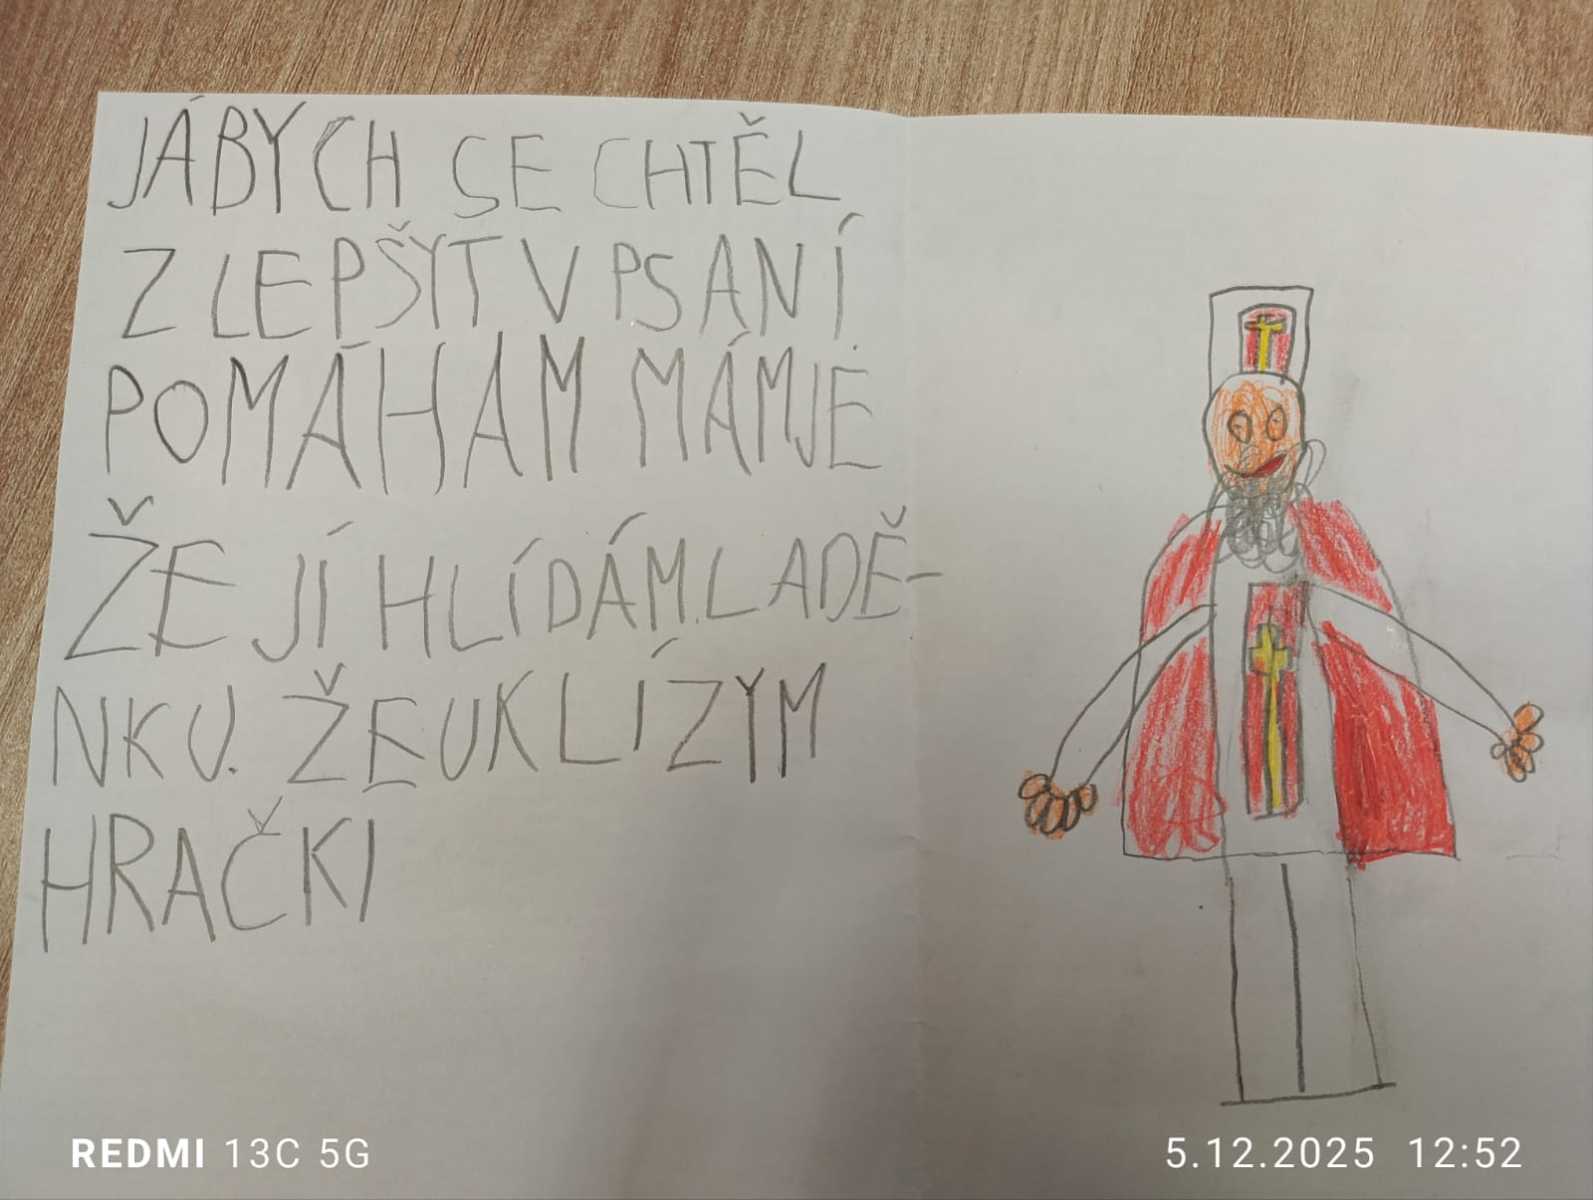 JÁBYCH SE CHTĚL
ZLEPŠYT V PSANÍ.
POMÁHAM MÁMJE
ŽE JÍ HLÍDÁM LADĚ-
NKU. ŽE UKLÍZYM
HRAČKI
REDMI 13C 5G
5.12.2025 12:52